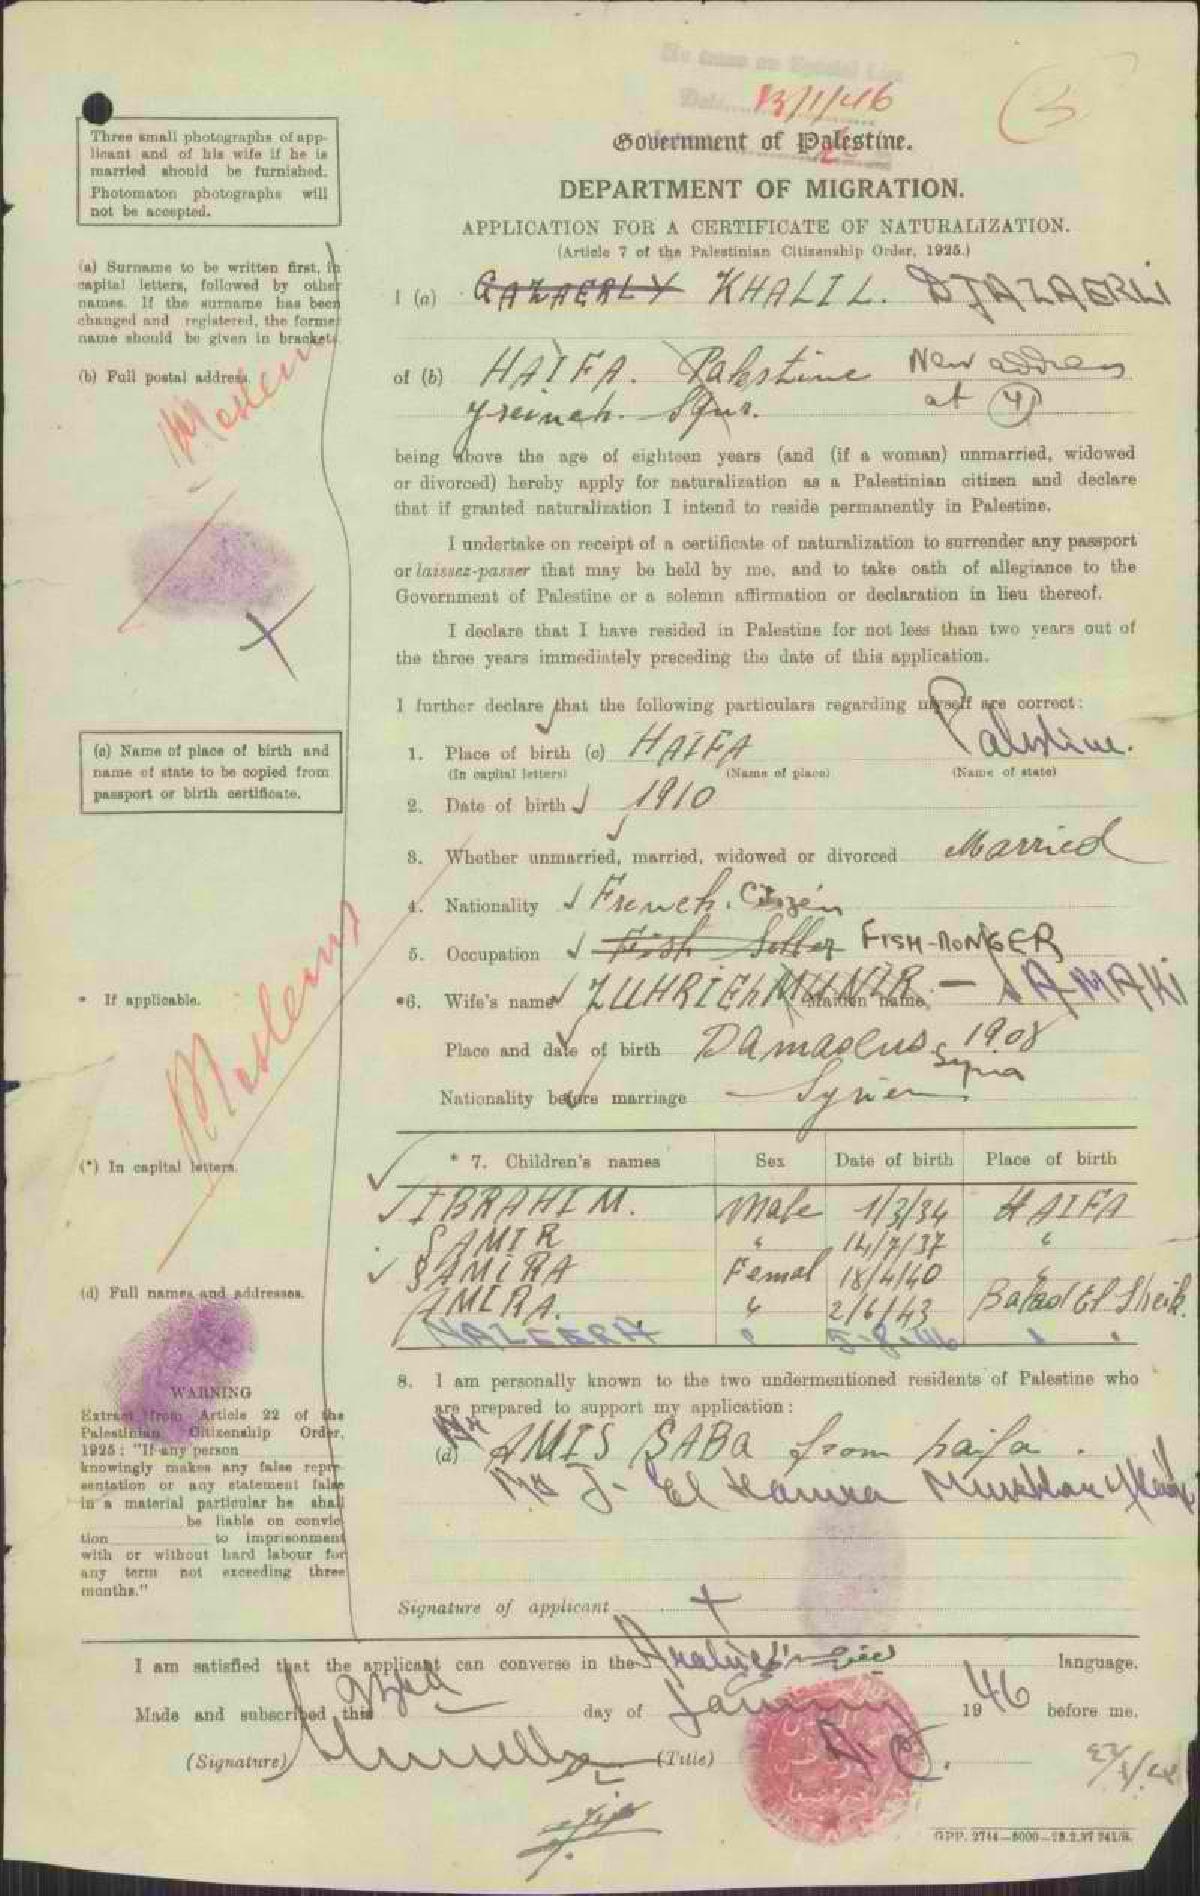 No trace on Special List
Date 13/1/46
Government of Palestine.
DEPARTMENT OF MIGRATION.
APPLICATION FOR A CERTIFICATE OF NATURALIZATION.
(Article 7 of the Palestinian Citizenship Order, 1925.)
Three small photographs of applicant and of his wife if he is married should be furnished.
Photomaton photographs will not be accepted.
(a) Surname to be written first, in capital letters, followed by other names. If the surname has been changed and registered, the former name should be given in brackets.
(b) Full postal address.
Moslem
I (a) GAZAERLY KHALIL. DJAZAERLI
of (b) HAIFA. Palestine New address
Jreineh. Squr. at 4
being above the age of eighteen years (and (if a woman) unmarried, widowed
or divorced) hereby apply for naturalization as a Palestinian citizen and declare
that if granted naturalization I intend to reside permanently in Palestine.
I undertake on receipt of a certificate of naturalization to surrender any passport
or laissez-passer that may be held by me, and to take oath of allegiance to the
Government of Palestine or a solemn affirmation or declaration in lieu thereof.
I declare that I have resided in Palestine for not less than two years out of
the three years immediately preceding the date of this application.
I further declare that the following particulars regarding myself are correct:
(c) Name of place of birth and name of state to be copied from passport or birth certificate.
1. Place of birth (c) HAIFA Palestine.
(In capital letters) (Name of place) (Name of state)
2. Date of birth 1910
3. Whether unmarried, married, widowed or divorced Married
4. Nationality French. Citizen
5. Occupation Fish Seller FISH-MONGER
* If applicable.
*6. Wife's name ZUHRIEH MUNIR - SAMAKI
Maiden name
Place and date of birth Damascus 1908
Syria
Nationality before marriage Syrien
Moslems
(*) In capital letters.
* 7. Children's names Sex Date of birth Place of birth
IBRAHIM. Male 1/3/34 HAIFA
SAMIR " 14/7/37 "
SAMIRA Femal 18/4/40 "
AMIRA. " 2/6/43 Balad El Sheik.
NAZEERA " 5-8-46 " "
(d) Full names and addresses.
8. I am personally known to the two undermentioned residents of Palestine who
are prepared to support my application:
(d) Mr AMIS SABA from haifa.
Mr J. El Hamra Mukhtar
WARNING
Extract from Article 22 of the
Palestinian Citizenship Order,
1925: "If any person
knowingly makes any false repre-
sentation or any statement false
in a material particular he shall
be liable on convic-
tion to imprisonment
with or without hard labour for
any term not exceeding three
months."
Signature of applicant
I am satisfied that the applicant can converse in the Arabic language.
Made and subscribed this day of January 1946 before me.
(Signature) (Title)
GPP. 2744—5000—18.2.37 241/S.